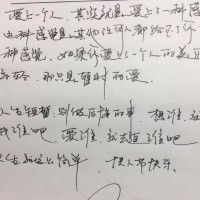 爱上一个人,其实就是爱上了一种感
这种感觉,其他任何人都给不了你
种感觉,如果你爱上一个人的美丽
那只是暂时的爱。
人生短暂,别做后悔的事,想谁,就
我谁吧,爱谁,就去追谁吧
生就这么简单,快人都快乐。